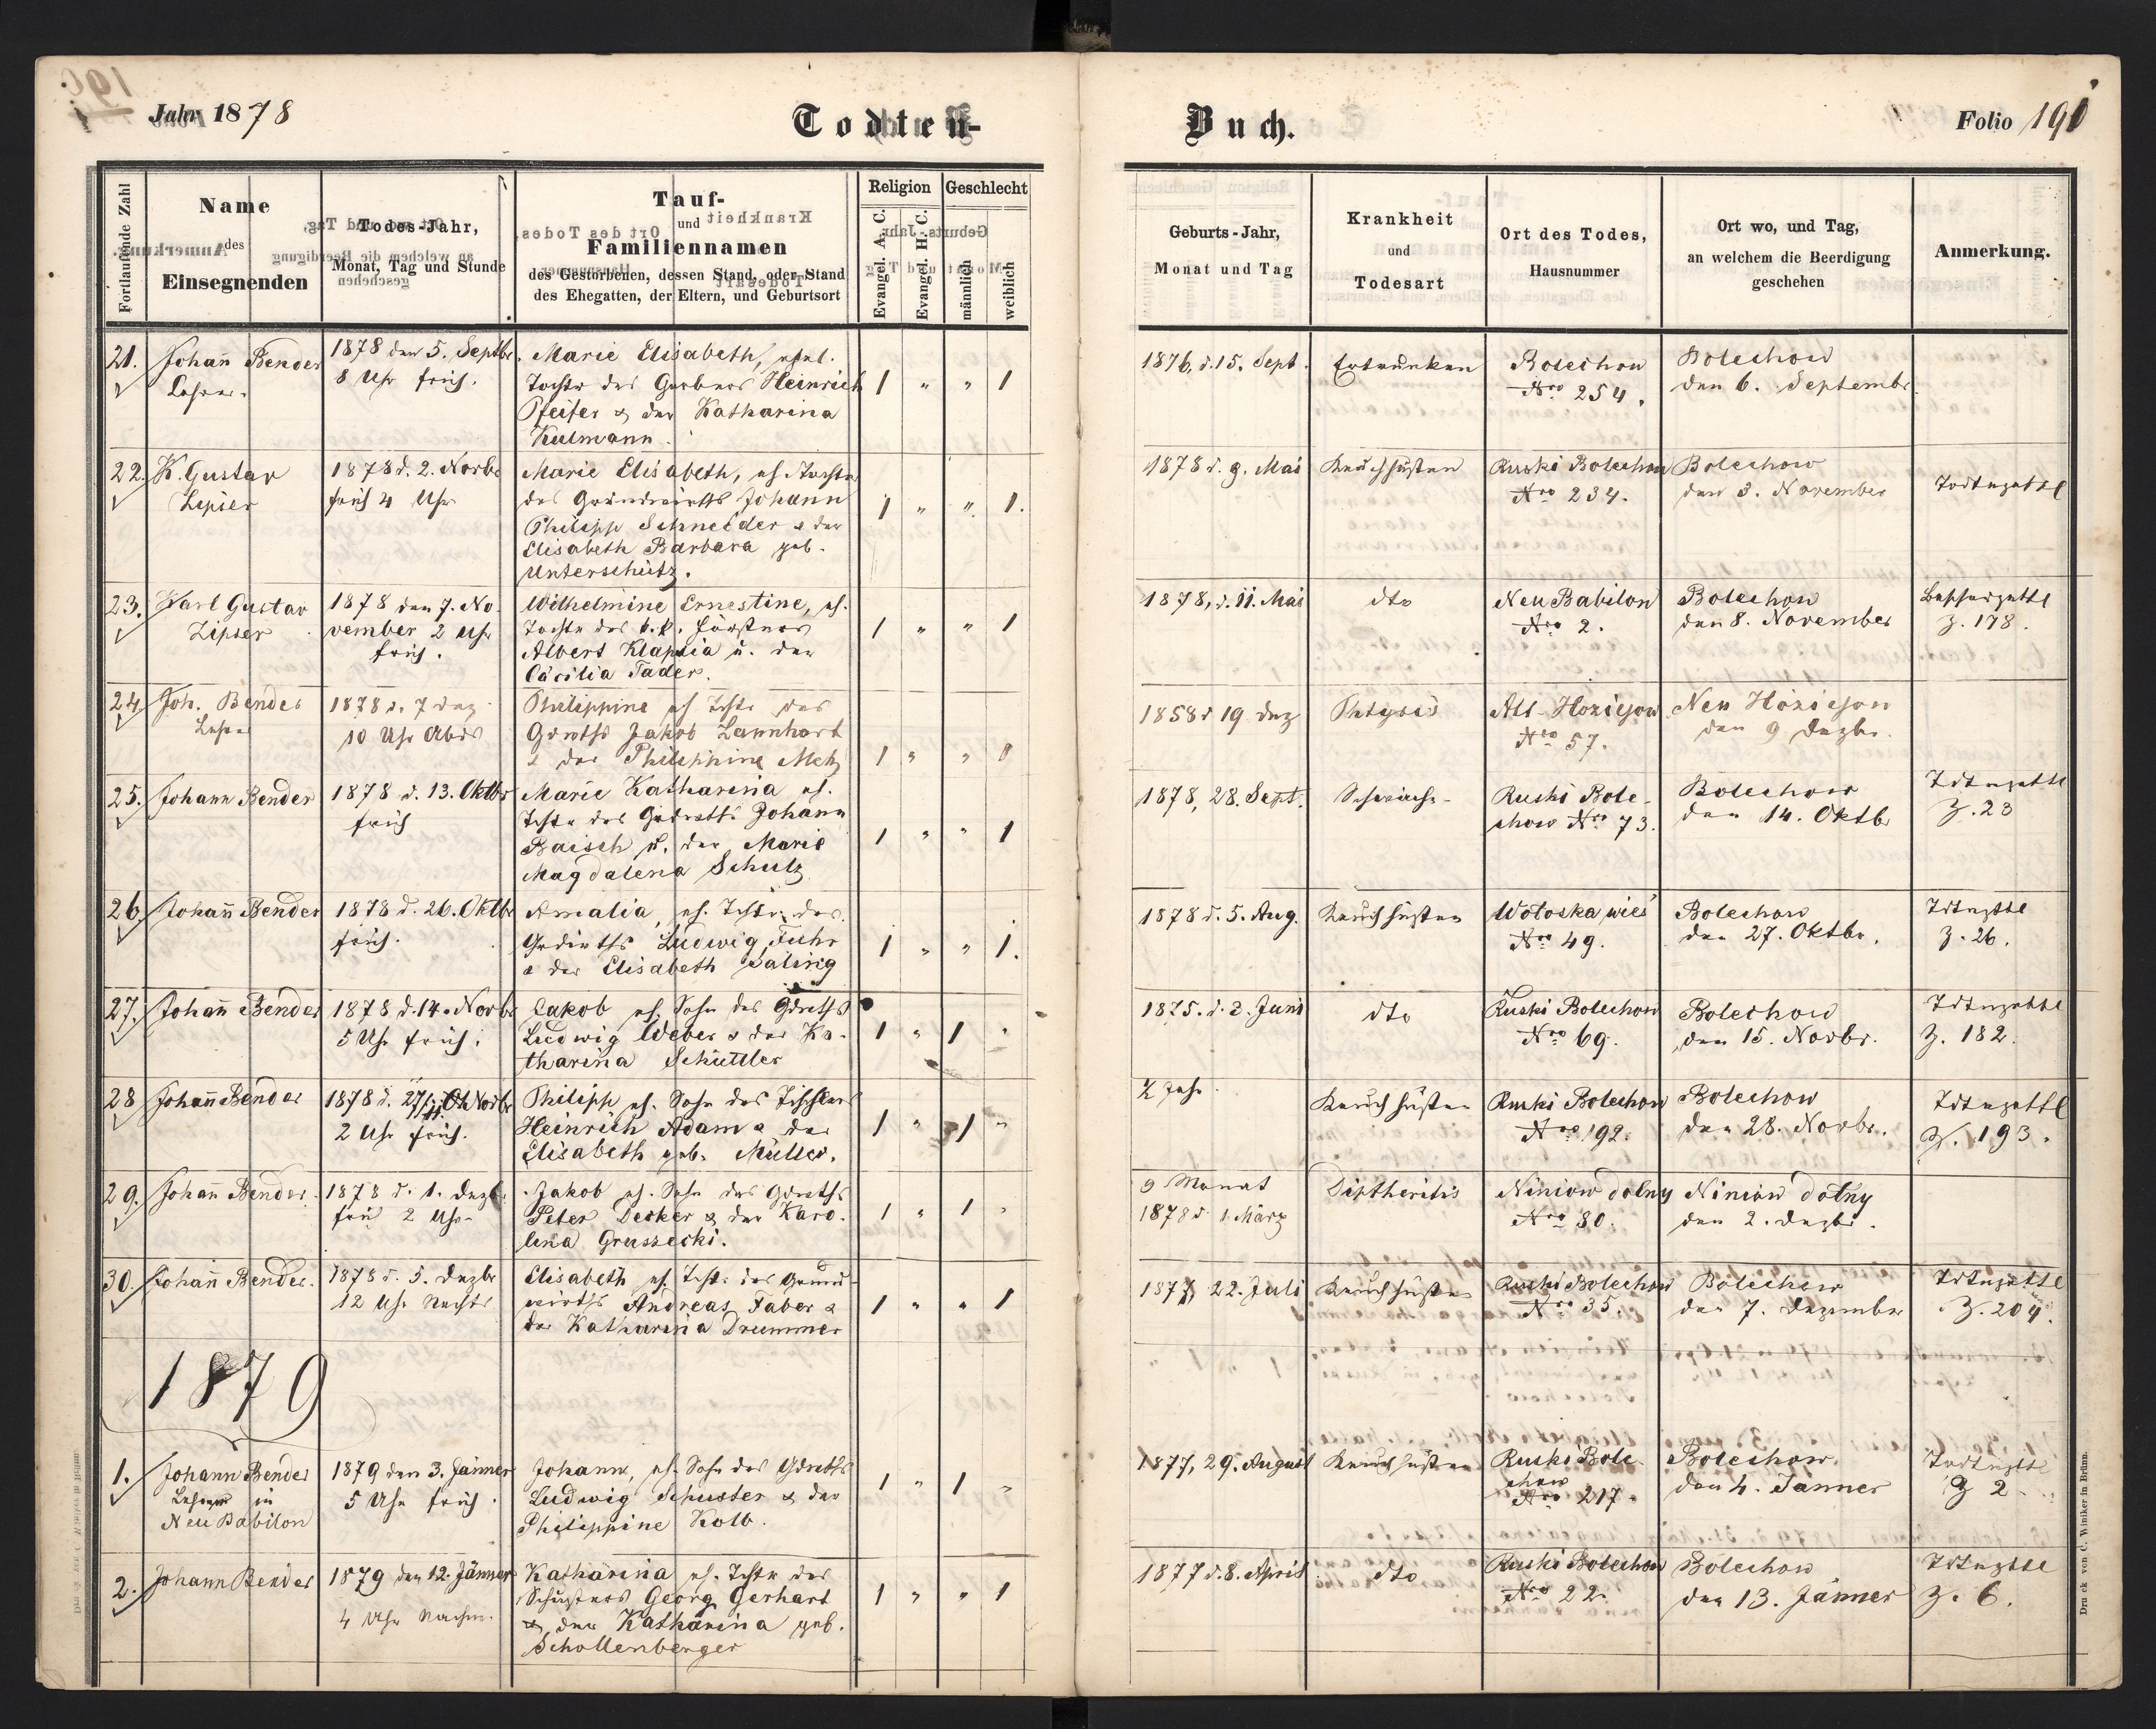 Jahr 1878
Todten-
Buch.
Folio 190
Fortlaufende Zahl
Name
des
Einsegnenden
Todes-Jahr,
Monat, Tag und Stunde
Tauf-
und
Familiennamen
des Gestorbenen, dessen Stand, oder Stand
des Ehegatten, der Eltern, und Geburtsort
Religion
Evangel. A. C.
Evangel. H. C.
Geschlecht
männlich
weiblich
Geburts-Jahr,
Monat und Tag
Krankheit
und
Todesart
Ort des Todes,
Hausnummer
Ort wo, und Tag,
an welchem die Beerdigung
geschehen
Anmerkung.
21. Johann Bender
Lehrer.
1878 den 5. Septbr.
8 Uhr früh.
Marie Elisabeth, ehel.
Tochter des Gerbers Heinrich
Pfeifer & der Katharina
Kulmann.
1 " " 1
1876, d. 15. Sept.
Ertrunken
Bolechow
Nro 254.
Bolechow
den 6. Septembr
22. K. Gustav
Zipser
1878 d. 2. Novbr
früh 4 Uhr
Marie Elisabeth, eh. Tochter
des Grundwirths Johann
Philipp Schneider & der
Elisabeth Barbara geb.
Unterschütz.
1 " " 1.
1878 d. 9. Mai
Keuchhusten
Ruski Bolechow
Nro 234.
Bolechow
den 3. November
Todtnzettl
23. Karl Gustav
Zipser
1878 den 7. No-
vember 2 Uhr
früh.
Wilhelmine Ernestine, eh.
Tochter des k.k. Försters
Albert Klapsia u. der
Cäcilia Tader.
1 " " 1
1878, d. 11. Mai
dto
Neu Babilon
Nro 2.
Bolechow
den 8. November
Z. 178.
24. Joh. Bender
Lehrer
1878 d. 7 Dez.
10 Uhr Abds
Philippine eh. Tchtr des
Grwths Jakob Lannhart
& der Philippine Metz
1 " " 1
1858 d 19 Dez
Phtysis
Alt-Hoziejow
Nro 57.
Neu Hoziejow
den 9 Dezbr.
25. Johann Bender
1878 d. 13. Oktbr
früh
Marie Katharina eh.
Tchtr des Grdwths Johann
Baisch u. der Marie
Magdalena Schulz
1 " " 1
1878, 28. Sept.
Schwäche
Ruski Bole-
chow Nro 73.
Bolechow
den 14. Oktb
Tdtnzettl
Z. 23
26. Johann Bender
1878 d. 26. Oktbr
früh.
Amalia, eh. Tchtr. des
Grdwths Ludwig Fuhr
& der Elisabeth Saling
1 " " 1.
1878 d. 5. Aug.
Keuchhusten
Wołoska wieś
Nro 49.
Bolechow
den 27. Oktbr.
Tdtnzttl
Z. 26.
27. Johann Bender
1878 d. 14. Novbr
5 Uhr früh.
Jakob eh. Sohn des Grdwths
Ludwig Weber & der Ka-
tharina Schüttler
1 " 1 "
1875. d. 2. Juni
dto
Ruski Bolechow
Nro 69.
Bolechow
den 15. Novbr.
Tdtnzettl
Z. 182.
28 Johann Bender
1878 d. 27/11 Novbr
2 Uhr früh.
Philipp eh. Sohn des Tischlers
Heinrich Adam & der
Elisabeth geb. Müller.
1 " 1 "
½ Jahr.
Keuchhusten
Ruski Bolechow
Nro 192.
Bolechow
den 28. Novbr.
Tdtnzettl
Z. 193.
29. Johann Bender.
1878 d. 1. Dezbr
früh 2 Uhr
Jakob eh. Sohn des Grdwths
Peter Decker & der Karo-
lina Gruszecki.
1 " 1 "
9 Monat
1878 d. 1. März
Diptheritis
Niniow dolny
Nro 80.
Niniow dolny
den 2. Dezbr.
30. Johann Bender.
1878 d. 5. Dezbr
12 Uhr Nachts
Elisabeth eh. Tcht. des Grund-
wirths Andreas Faber &
der Katharina Drummer
1 " " 1
1877, 22. Juli
Keuchhusten
Ruski Bolechow
Nro 35.
Bolechow
den 7. Dezember
Tdtnzettl
Z. 204.
1879
1. Johann Bender
Lehrer in
Neu Babilon
1879 den 3. Jänner
5 Uhr früh.
Johann, eh. Sohn des Grdwths
Ludwig Schuster & der
Philippine Kolb.
1 " 1 "
1877, 29. August
Keuchhusten
Ruski Bole-
chow
Nro 217.
Bolechow.
den 4. Jänner
Todtnzttl
Z 2.
2. Johann Bender
1879 den 12. Jänner
4 Uhr Nachm.
Katharina, eh. Tchtr des
Schusters Georg Gerhart
& der Katharina geb.
Schollenberger
1 " " 1
1877 d. 8. April
dto
Ruski Bolechow
Nro 22.
Bolechow
den 13. Jänner
Tdtnzttl
Z. 6.
Druck von C. Winiker in Brünn.